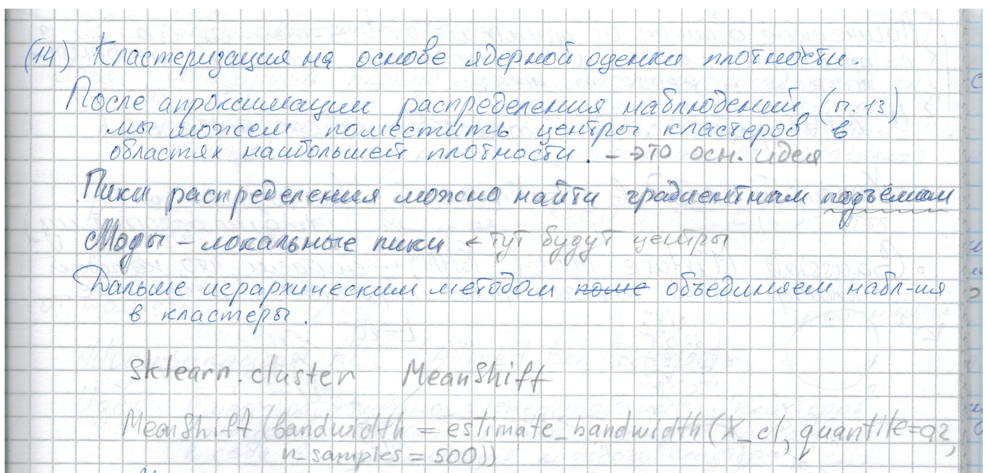 (14) Кластеризация на основе ядерной оценки плотности.
После апроксимации распределения наблюдений, (п. 13)
мы можем поместить центры кластеров в
областях наибольшей плотности. – это осн. идея
Пики распределения можно найти градиентным подъёмом
Моды – локальные пики ← тут будут центры
Дальше иерархическим методом объединяем набл-ия
в кластеры.
Sklearn.cluster MeanShift
MeanShift(bandwidth = estimate_bandwidth(X_cl, quantile=0.2,
n_samples = 500))